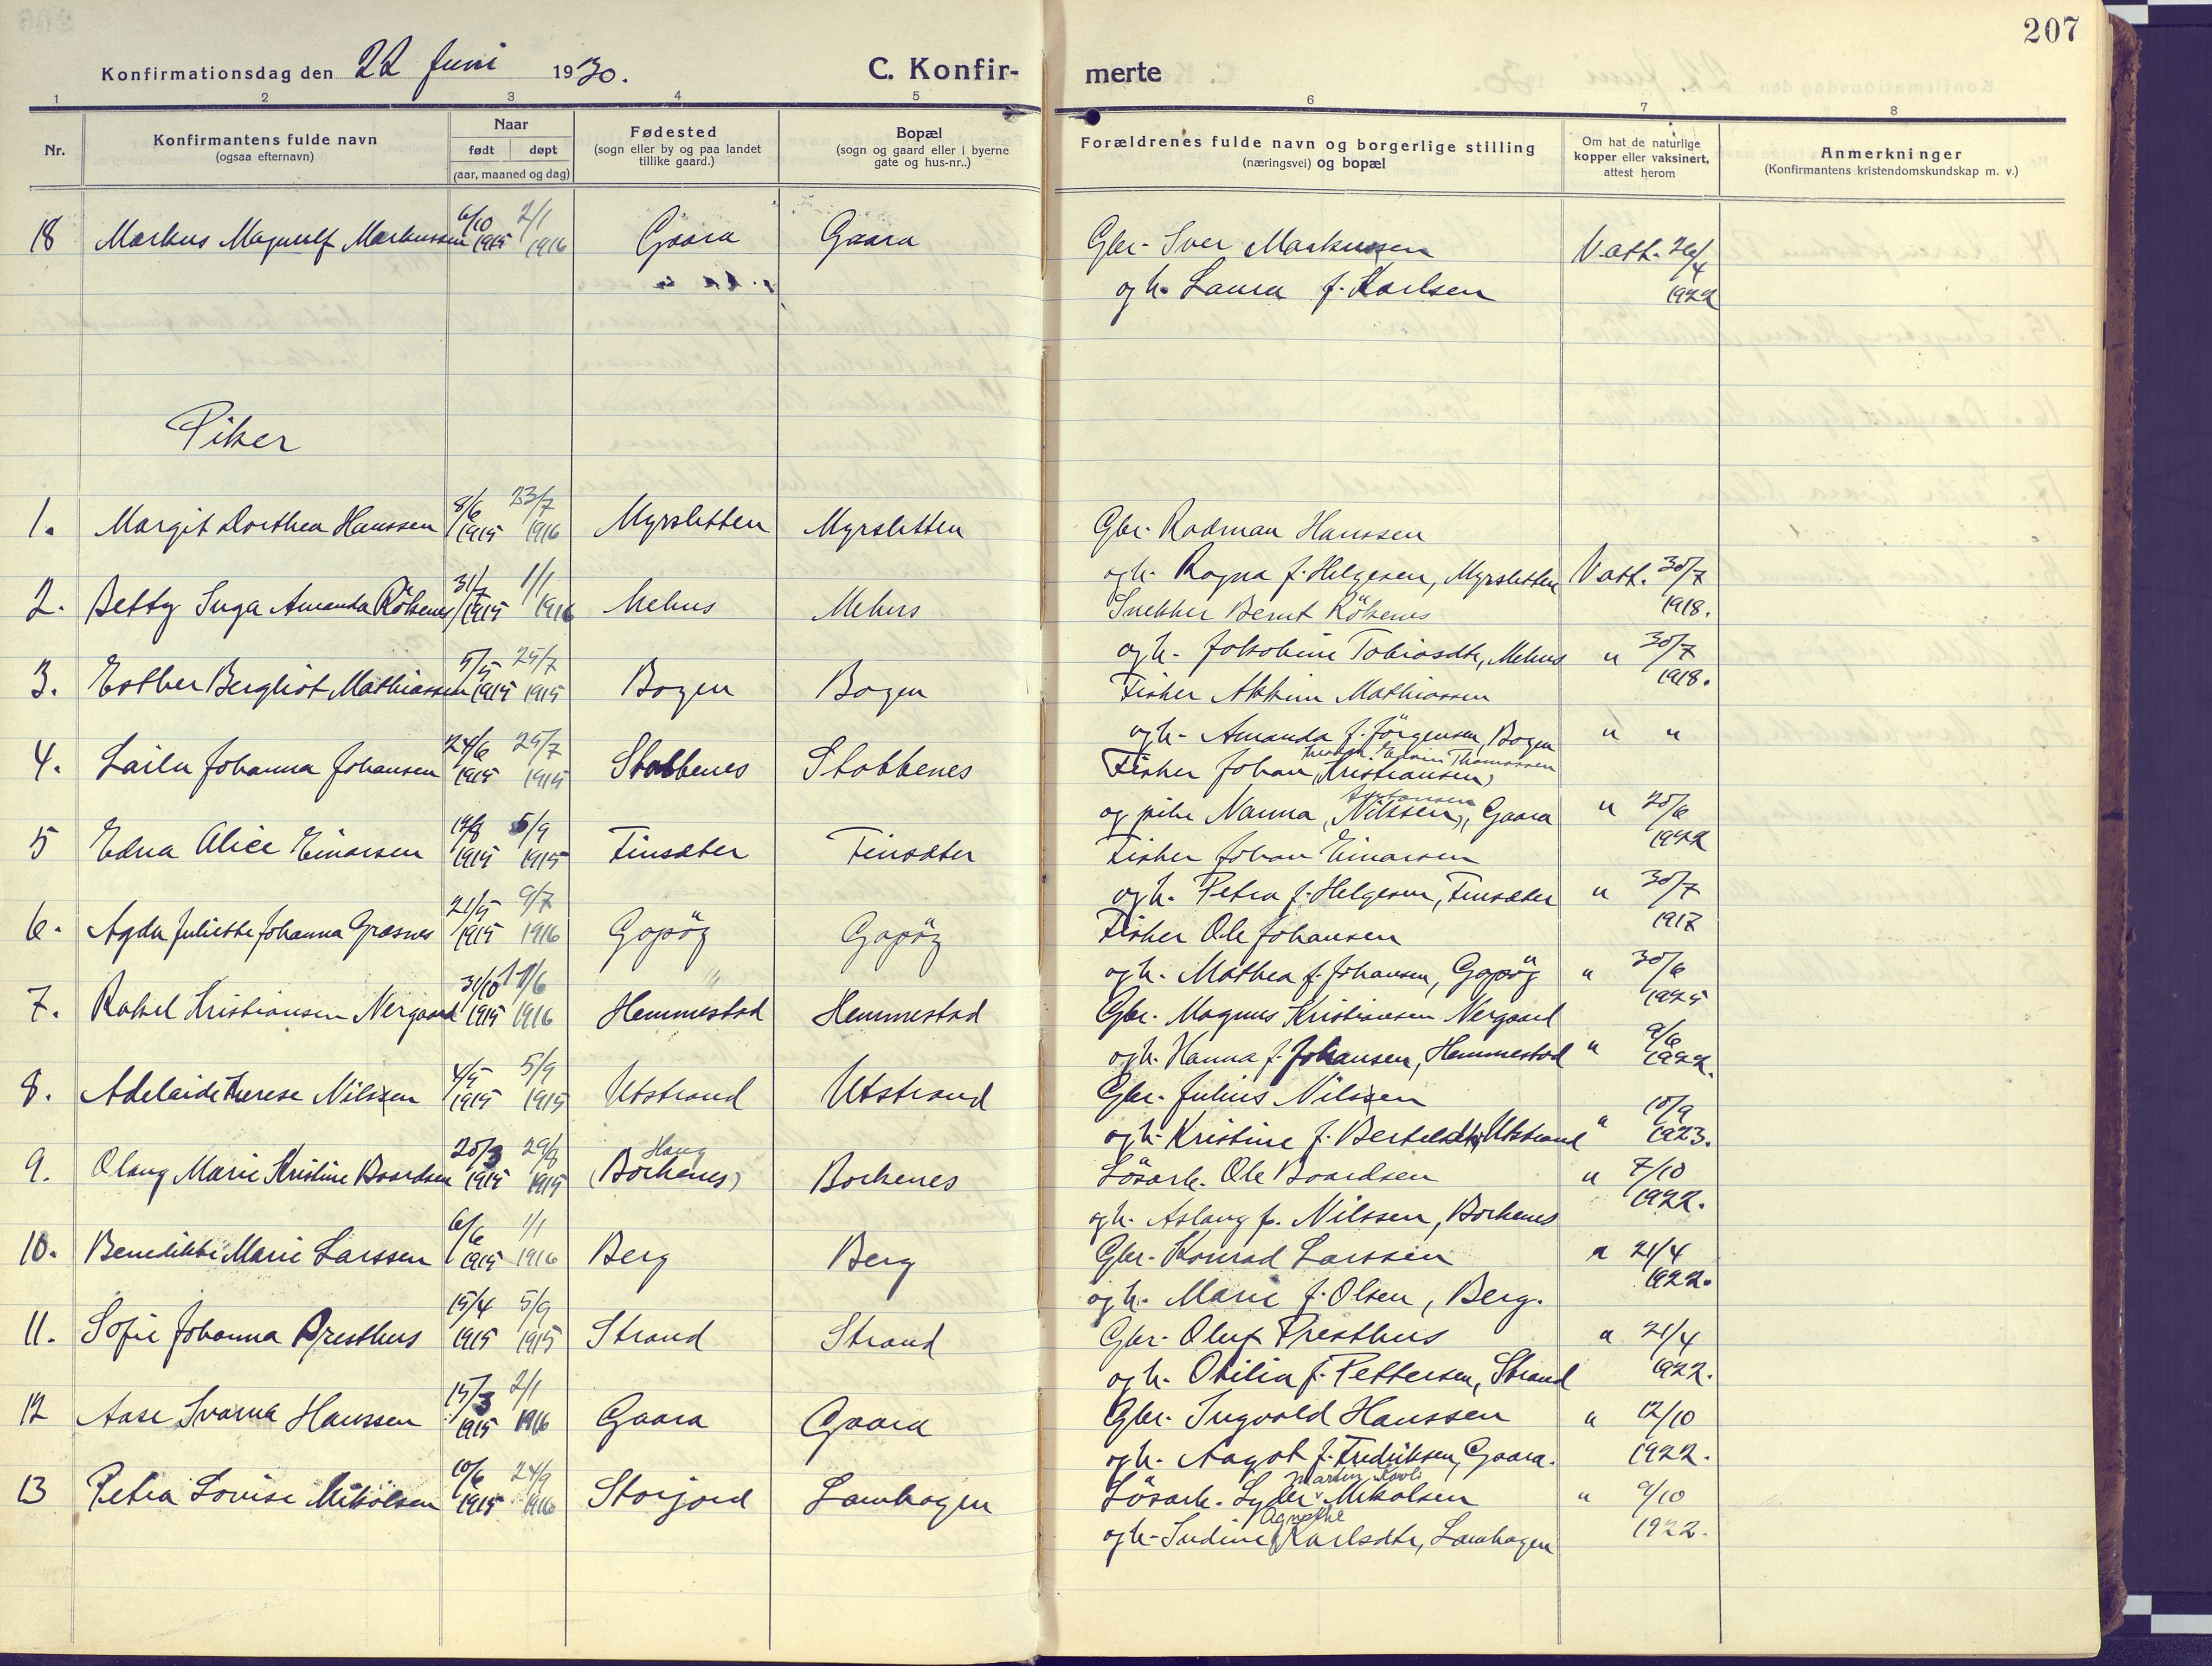 207
Konfirmationsdag den 22 Juni 1930.
C. Konfir- merte
1 2 3 4 5 6 7 8
Nr.
Konfirmantens fulde navn
(ogsaa efternavn)
Naar
født døpt
(aar, maaned og dag)
Fødested
(sogn eller by og paa landet
tillike gaard.)
Bopæl
(sogn og gaard eller i byerne
gate og hus-nr..)
Forældrenes fulde navn og borgerlige stilling
(næringsvei) og bopæl
Om hat de naturlige
kopper eller vaksinert,
attest herom
Anmerkninger
(Konfirmantens kristendomskundskap m. v.)
18 Markus Magnulf Markussen 6/10 1915 2/1 1916 Gaara Gaara Gbr. Iver Markussen V.att. 26/4
og h. Laura f. Karlsen 1922
Piker
1. Margit Dorthea Hanssen 8/6 1915 23/7 1916 Myrsletten Myrsletten Gbr. Rodman Hanssen
og h. Ragna f. Helgesen, Myrsletten V.att. 30/7 1918.
2. Betty Inga Amanda Rökenes 31/7 1915 1/1 1916 Mehus Mehus Snekker Bernt Rökenes
og h. Jakobine Tobiasdtr, Mehus " 30/7 1918.
3. Esther Bergliot Mathiassen 5/5 1915 25/7 1915 Bogen Bogen Fisker Akkim Mathiassen
og h. Amanda f. Jörgensen, Bogen " "
4. Laila Johanna Johansen 24/6 1915 25/7 1915 Stobbenes Stobbenes Fisker Johan (Kristiansen) Edvin Thomassen
og pike Nanna (Nilssen), Gaara " 25/6 1922
5 Edna Alice Einarsen 1915 5/9 1915 Finsæter Finsæter Fisker Johan Einarsen
og h. Petra f. Helgesen, Finsæter " 30/7 1917
6. Agda Juliette Johanna Græsnes 21/5 1915 9/7 1916 Gopög Gopög Fisker Ole Johansen
og h. Mathea f. Johansen, Gopög " 30/6 1925
7. Rakel Kristiansen Nergaard 31/10 1915 11/6 1916 Hemmestad Hemmestad Gbr. Magnus Kristiansen Nergaard
og h. Hanna f. Johansen, Hemmestad " 9/6 1922.
8. Adelaide Therese Nilsen 4/5 1915 5/9 1915 Utstrand Utstrand Gbr. Julius Nilsen
og h. Kristine f. Berteldtr, Utstrand " 10/9 1923.
9. Olaug Marie Kristine Baardsen 20/3 1915 29/8 1915 Haug (Borkenes) Borkenes Lösarb. Ole Baardsen " 7/10
og h. Aslaug f. Nilssen, Borkenes 1922.
10. Benedikte Marie Larssen 6/6 1915 1/1 1916 Berg Berg Gbr. Konrad Larssen " 21/4
og h. Marie f. Olsen, Berg. 1922.
11. Sofie Johanna Presthus 15/4 1915 5/9 1915 Strand Strand Gbr. Oluf Presthus " 21/4
og h. Otilia f. Pettersen, Strand 1922.
12 Aase Ivarna Hanssen 15/3 1915 2/1 1916 Gaara Gaara Gbr. Ingvald Hanssen " 12/10
og h. Aagot f. Fredriksen, Gaara. 1922.
13 Petra Lovise Mikalsen 10/6 1915 24/9 1916 Storjord Lamhagen Lösarb. Lyder Mikalsen " 9/10
og h. Indine Agnethe Karlsdtr, Lamhagen 1922.